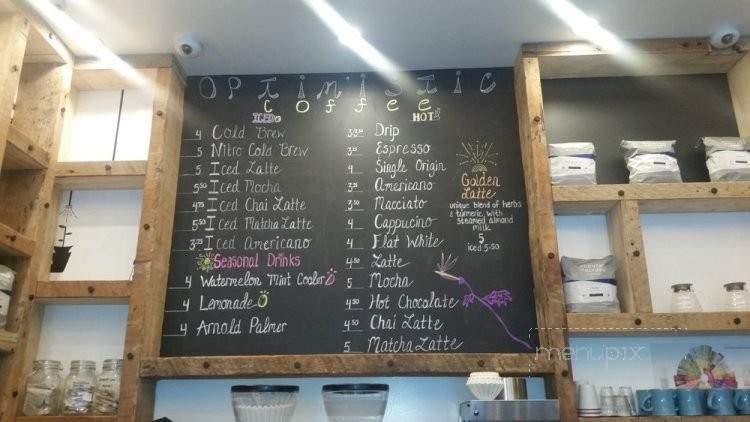 OPTIMISTIC
coffee
ICED
4 Cold Brew
5 Nitro Cold Brew
5 Iced Latte
5.50 Iced Mocha
4.75 Iced Chai Latte
5.50 Iced Matcha Latte
3.25 Iced Americano
Seasonal Drinks
4 Watermelon Mint Cooler
4 Lemonade
4 Arnold Palmer
HOT
Drip
Espresso
4 Single Origin
Americano
Macciato
4 Cappucino
4 Flat White
4.50 Latte
5 Mocha
4.50 Hot Chocalate
4.50 Chai Latte
5 Matcha Latte
Golden
Latte
unique blend of herbs
& turmeric, with
steamed almond
milk
5
iced 5.50
menupix